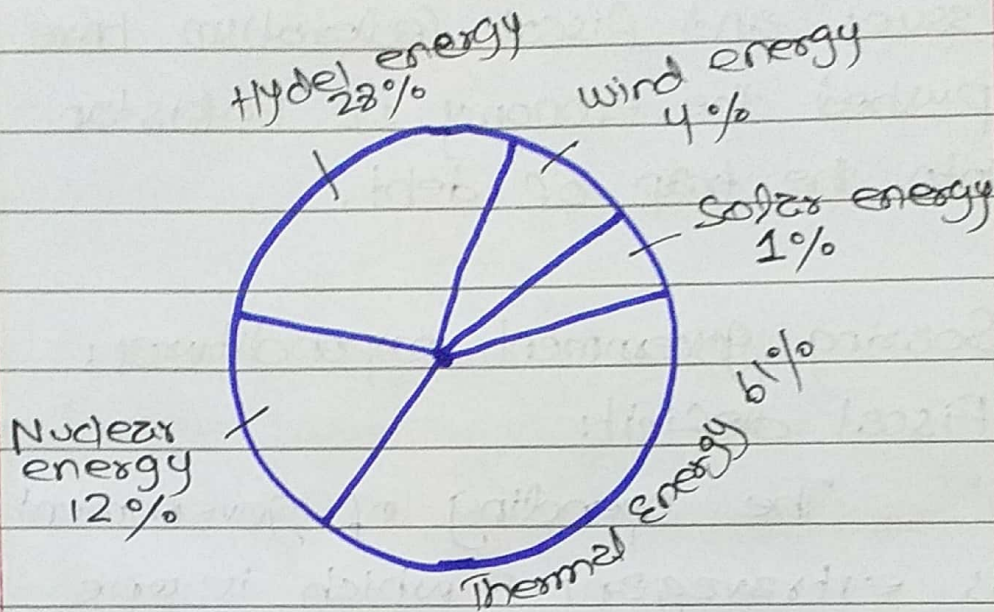 Hydel energy
28%
wind energy
4%
Solar energy
1%
61%
Thermal Energy
Nuclear
energy
12%